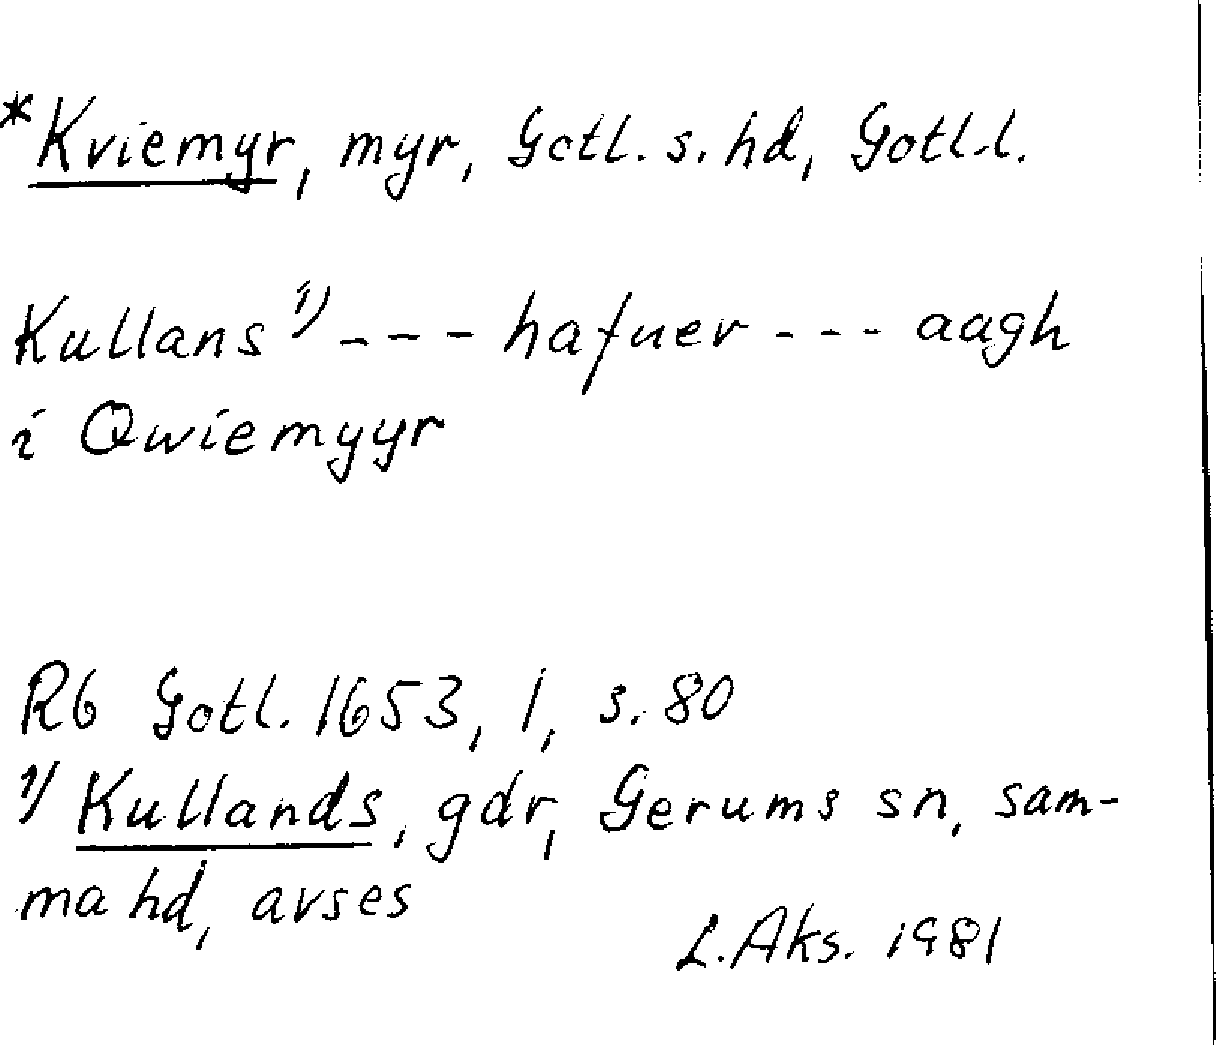 *Kviemyr, myr, Gotl. s. hd, Gotl.l.
Kullans 1) --- hafuer --- aagh
i Qwiemyyr
Rb Gotl. 1653, 1, s. 80
1) Kullands, gdr, Gerums sn, sam-
ma hd, avses
L. Aks. 1981